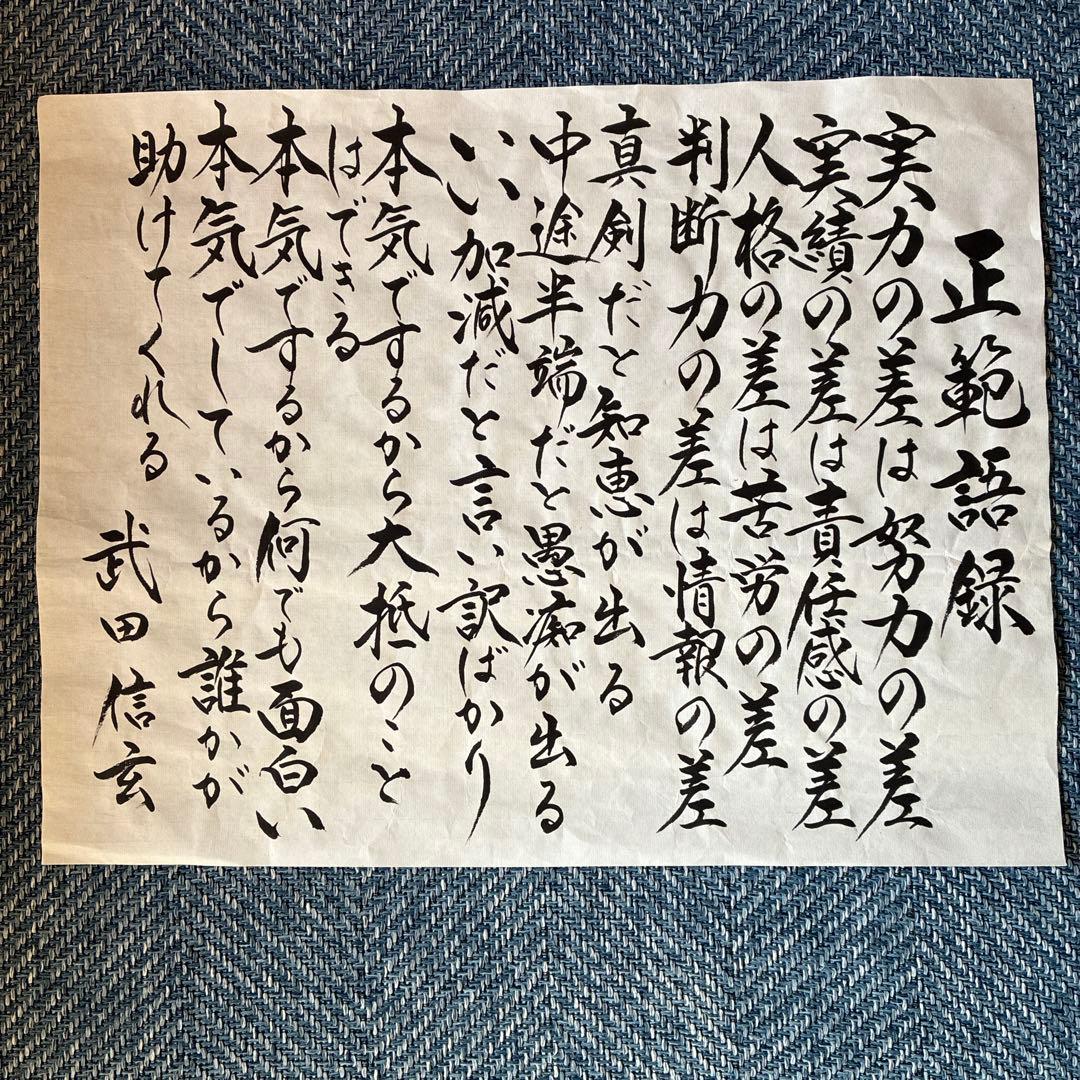 正範語録
実力の差は努力の差
実績の差は責任感の差
人格の差は苦労の差
判断力の差は情報の差
真剣だと知恵が出る
中途半端だと愚痴が出る
いい加減だと言い訳ばかり
本気でするから大抵のこと
はできる
本気でするから何でも面白い
本気でしているから誰かが
助けてくれる
武田信玄